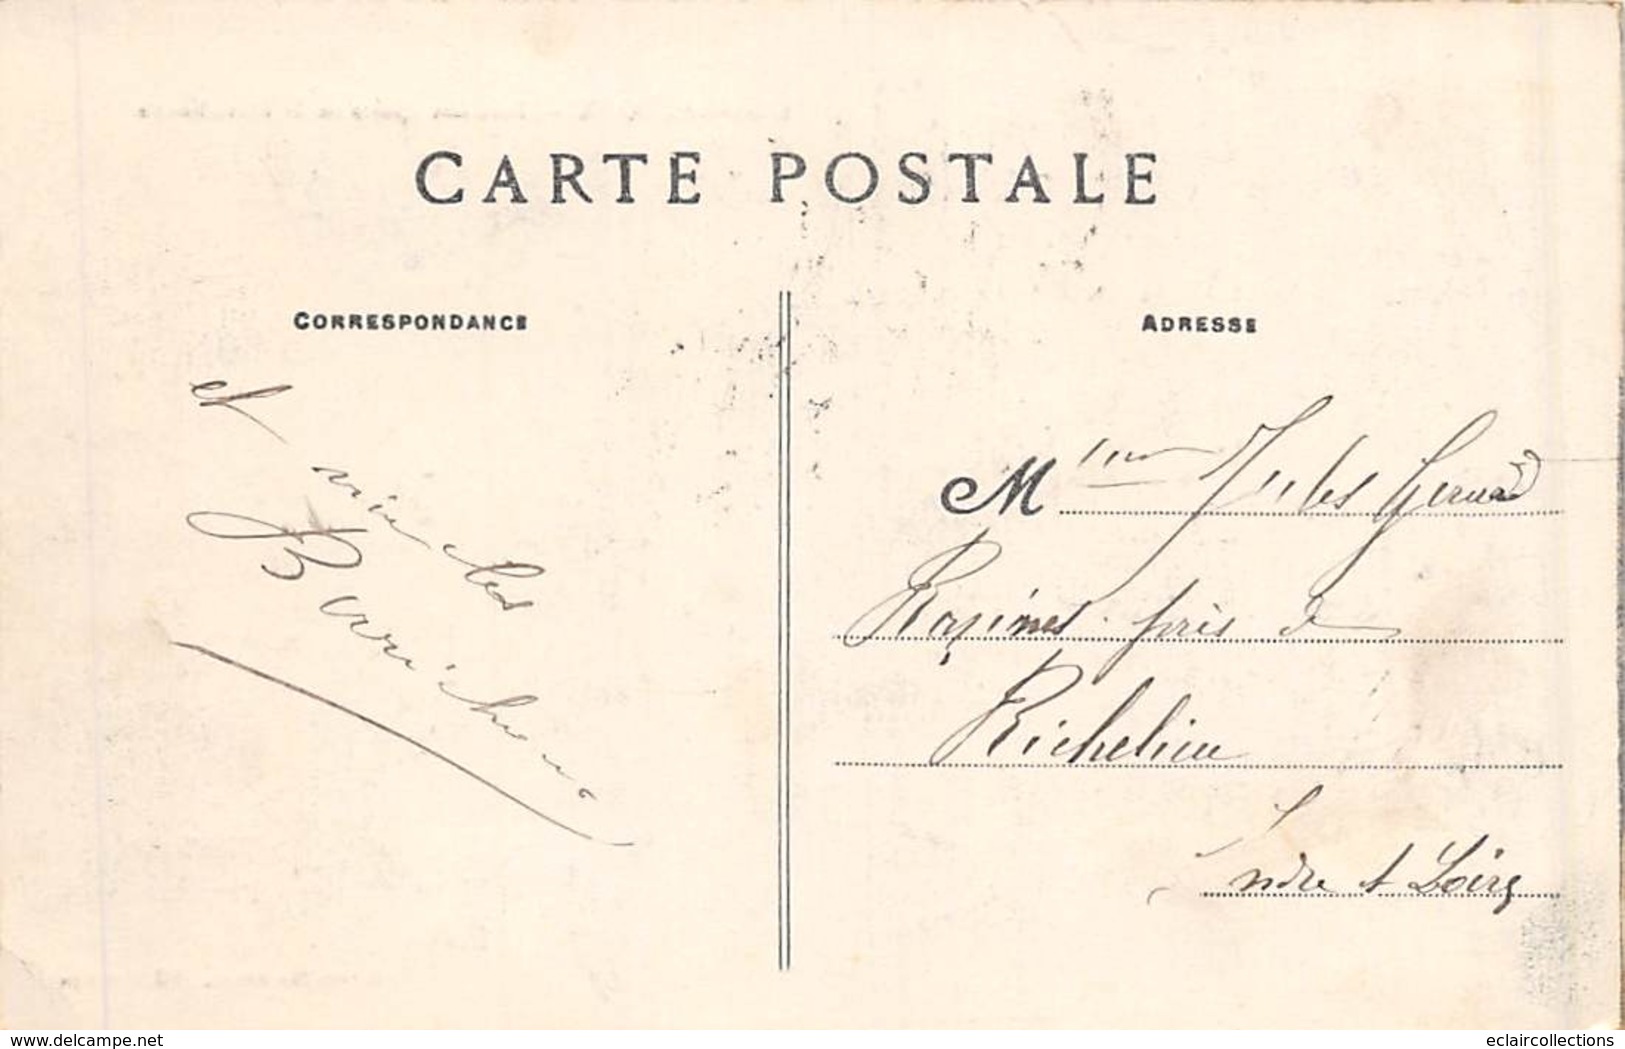 CARTE POSTALE
CORRESPONDANCE
ADRESSE
et
Mme Jules
Razines près de
Richelieu
Indre et Loire
delcampe.net
eclaircollections